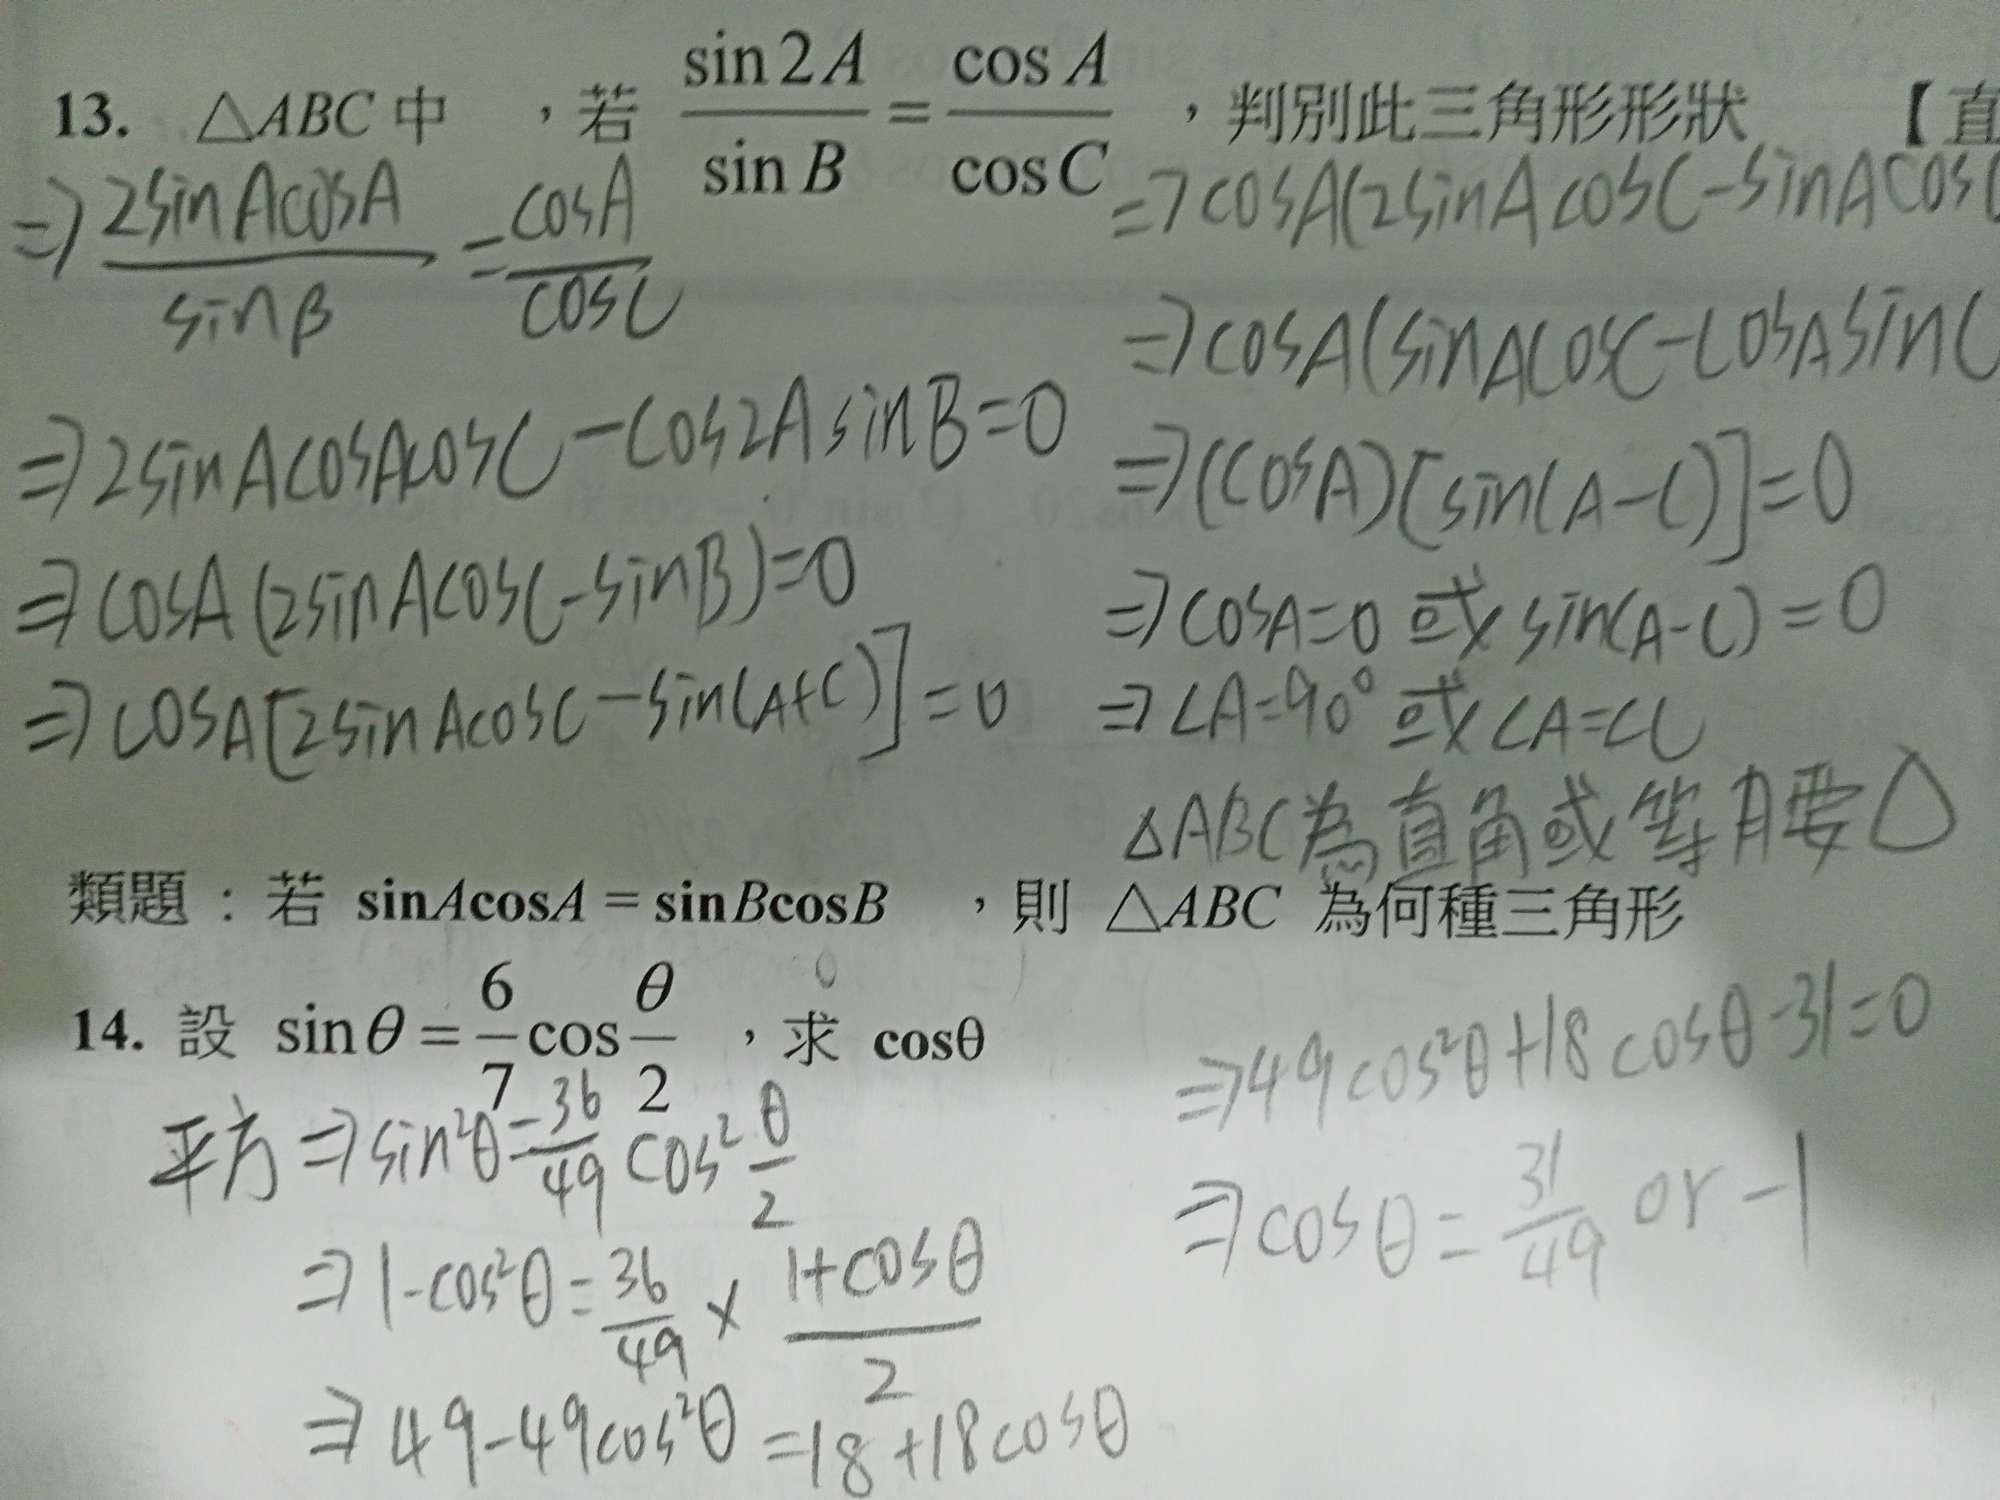 13. △ABC 中 ，若 sin2A/sinB = cosA/cosC ，判別此三角形形狀 【直
⇒ 2sinAcosA/sinB = cosA/cosC
⇒ 2sinAcosAcosC - cos2AsinB = 0
⇒ cosA(2sinAcosC - sinB) = 0
⇒ cosA[2sinAcosC - sin(A+C)] = 0
⇒ cosA(2sinAcosC - sinAcosC
⇒ cosA(sinAcosC - cosAsinC
⇒ (cosA)[sin(A-C)] = 0
⇒ cosA=0 或 sin(A-C) = 0
⇒ ∠A=90° 或 ∠A=∠C
△ABC為直角或等腰△
類題：若 sinAcosA = sinBcosB ，則 △ABC 為何種三角形
14. 設 sinθ = 6/7 cos θ/2 ，求 cosθ
平方 ⇒ sin²θ = 36/49 cos² θ/2
⇒ 1-cos²θ = 36/49 × (1+cosθ)/2
⇒ 49-49cos²θ = 18+18cosθ
⇒ 49cos²θ+18cosθ-31=0
⇒ cosθ = 31/49 or -1